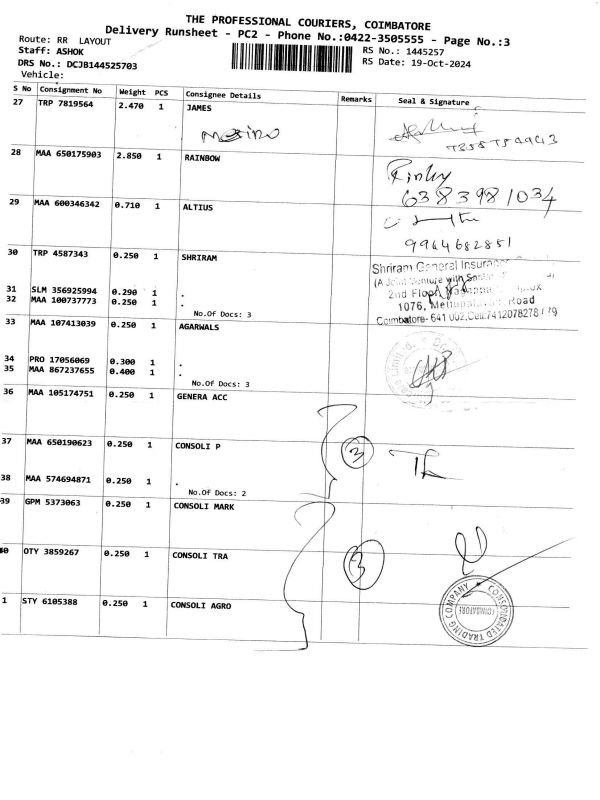 THE PROFESSIONAL COURIERS, COIMBATORE
Delivery Runsheet - PC2 - Phone No.:0422-3505555 - Page No.:3
Route: RR LAYOUT
RS No.: 1445257
Staff: ASHOK
RS Date: 19-Oct-2024
DRS No.: DCJB144525703
Vehicle:
S No Consignment No Weight PCS Consignee Details Remarks Seal & Signature
27 TRP 7819564 2.470 1 JAMES
28 MAA 650175903 2.850 1 RAINBOW
6383981034
29 MAA 600346342 0.710 1 ALTIUS
9964682851
30 TRP 4587343 0.250 1 SHRIRAM
Shriram General Insurance
(A Joint Venture with
2nd Floor,
1076, Road
Coimbatore- 641 002,
31 SLM 356925994 0.290 1 .
32 MAA 100737773 0.250 1 .
No.Of Docs: 3
33 MAA 107413039 0.250 1 AGARWALS
34 PRO 17056069 0.300 1 .
35 MAA 867237655 0.400 1 .
No.Of Docs: 3
36 MAA 105174751 0.250 1 GENERA ACC
37 MAA 650190623 0.250 1 CONSOLI P
3
38 MAA 574694871 0.250 1 .
No.Of Docs: 2
39 GPM 5373063 0.250 1 CONSOLI MARK
40 OTY 3859267 0.250 1 CONSOLI TRA
3
1 STY 6105388 0.250 1 CONSOLI AGRO
CONSOLIDATED TRADING COMPANY
COIMBATORE